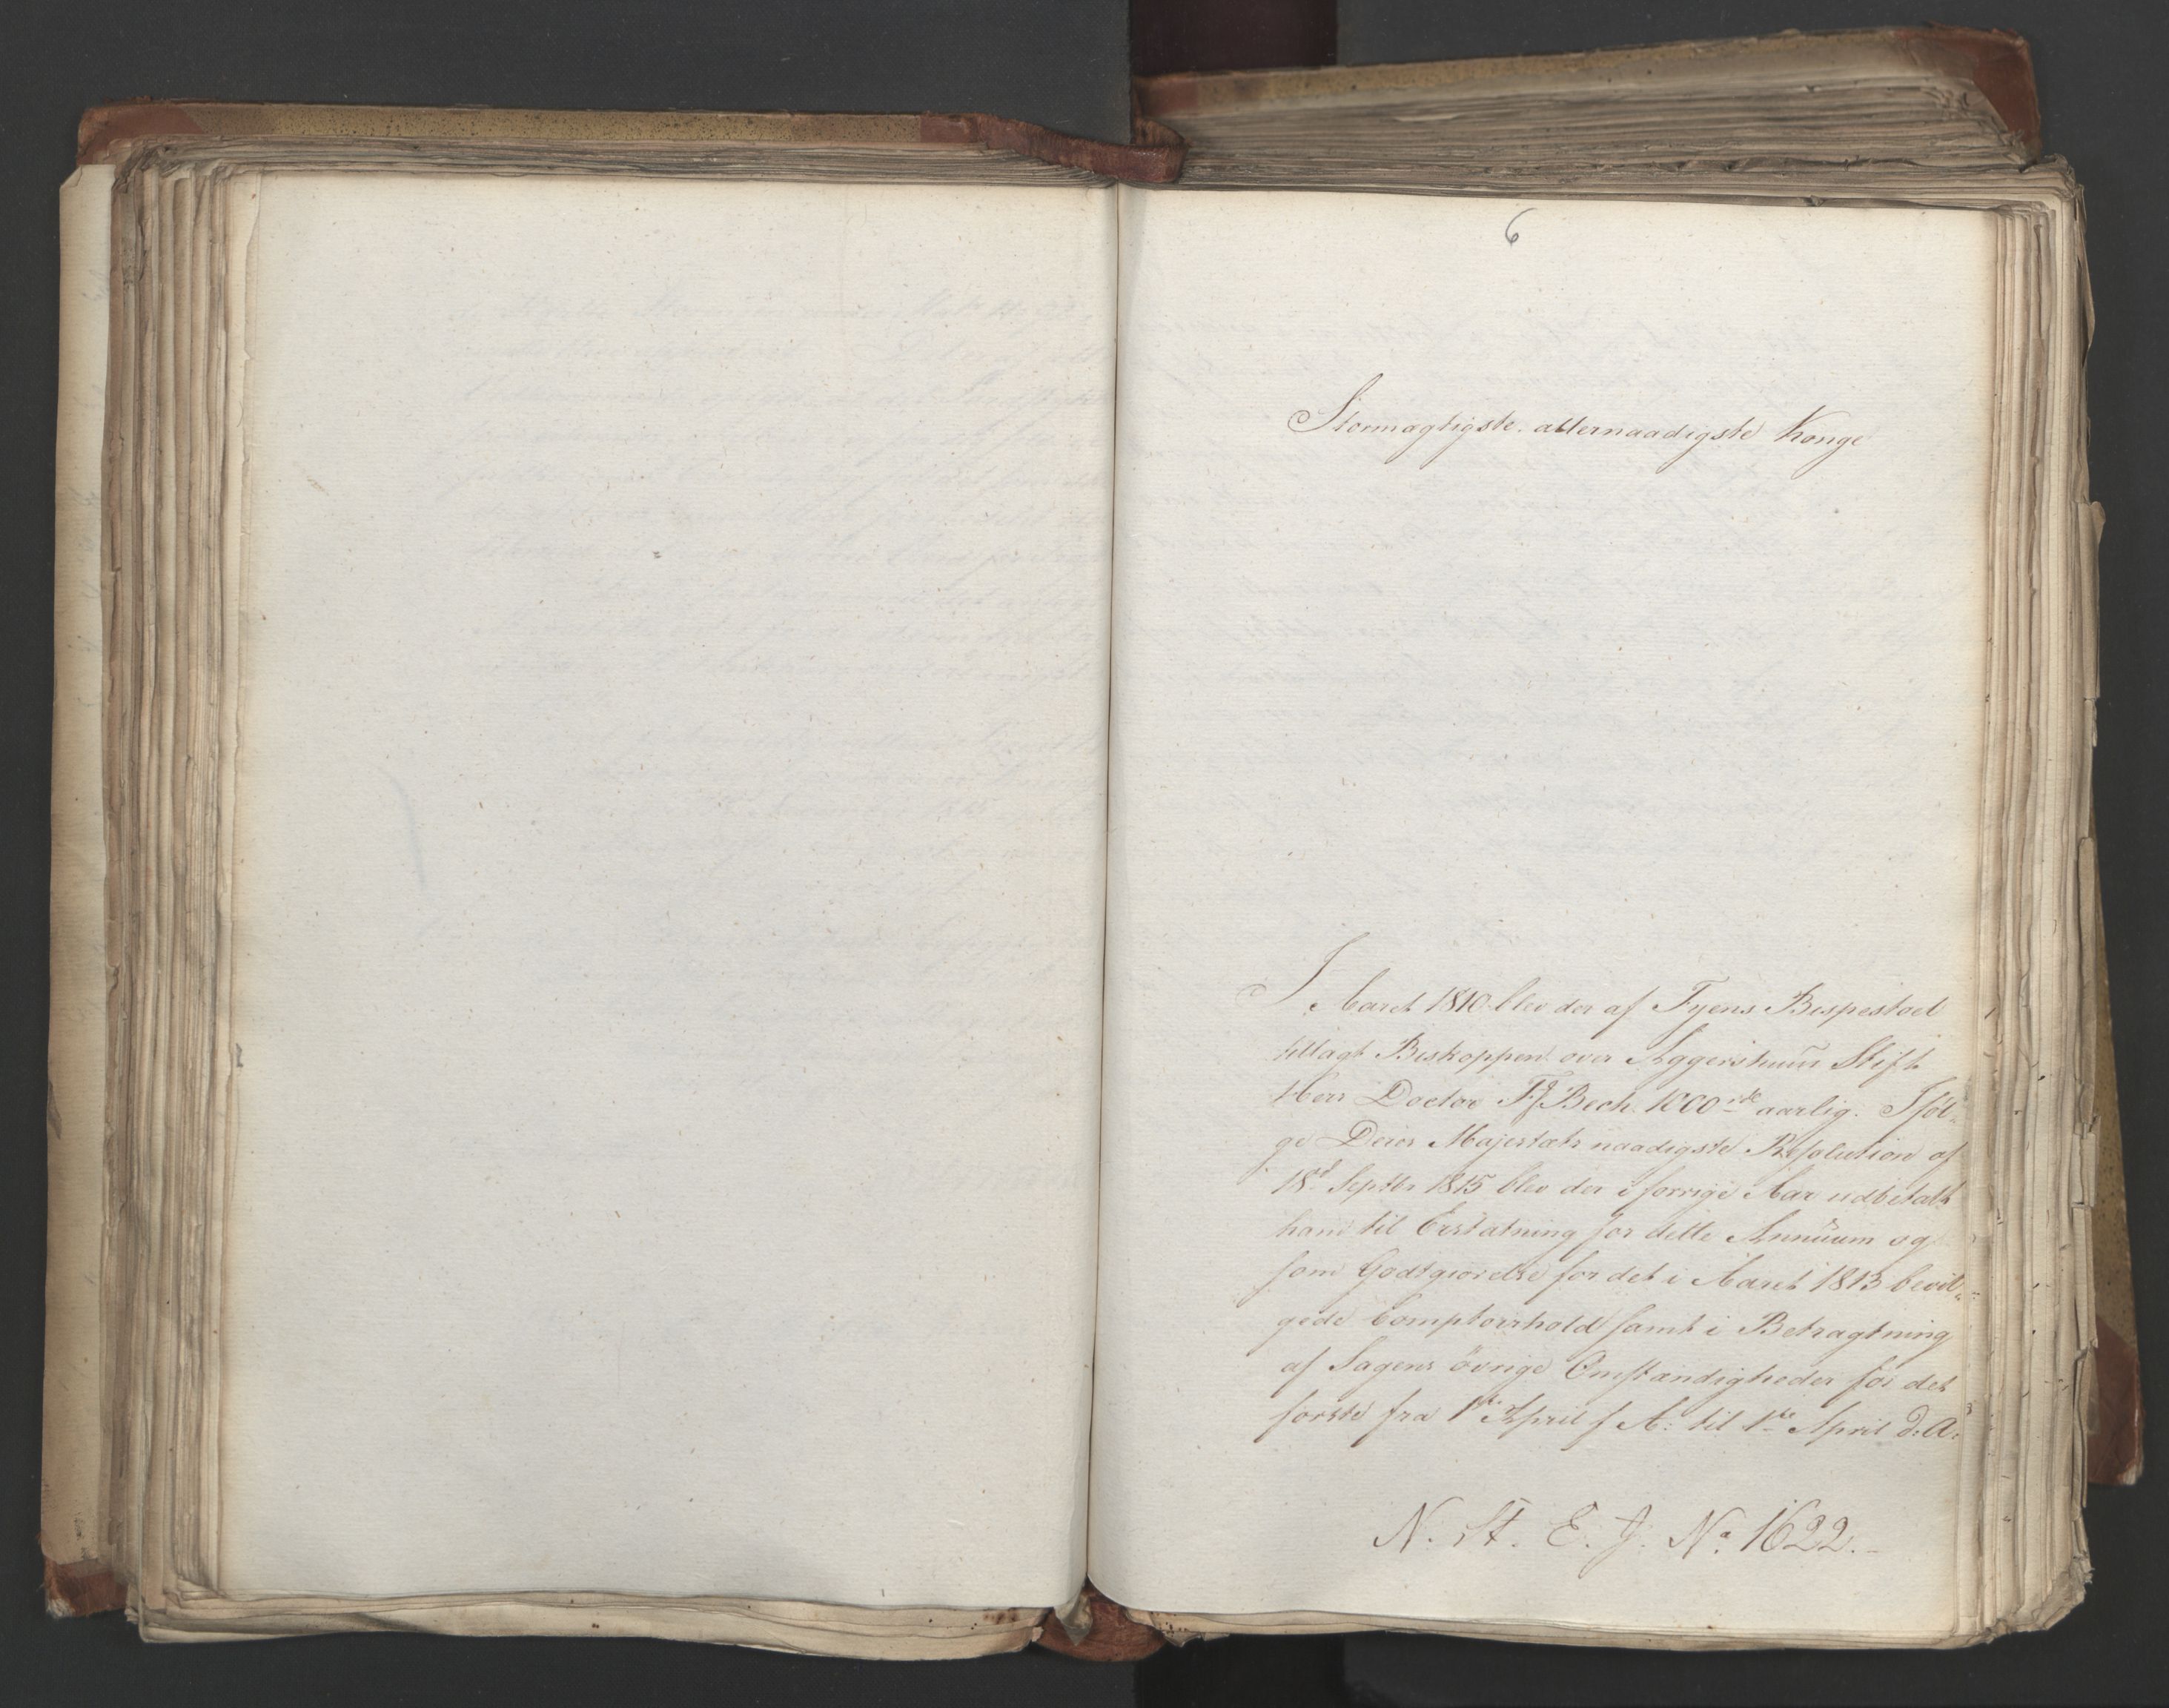 6
Stormægtigste. allernaadigste Konge
I Aaret 1810 blev der af Fyens Bispestoel
tillagt Biskoppen over Aggershuus Stift
Herr Doctor F J Bech 1000 rdr aarlig. Iføl-
ge Deres Majestæts naadigste Resolution af
18de Septbr 1815 blev der i forrige Aar udbetalt
ham til Erstatning for dette Annuum og
som Godtgiørelse for det i Aaret 1813 bevil-
gede Comptoirhold samt i Betragtning
af Sagens øvrige Omstændigheder for det
første fra 1te April f A: til 1te April d: A:
N. St. E. J. No. 1622.